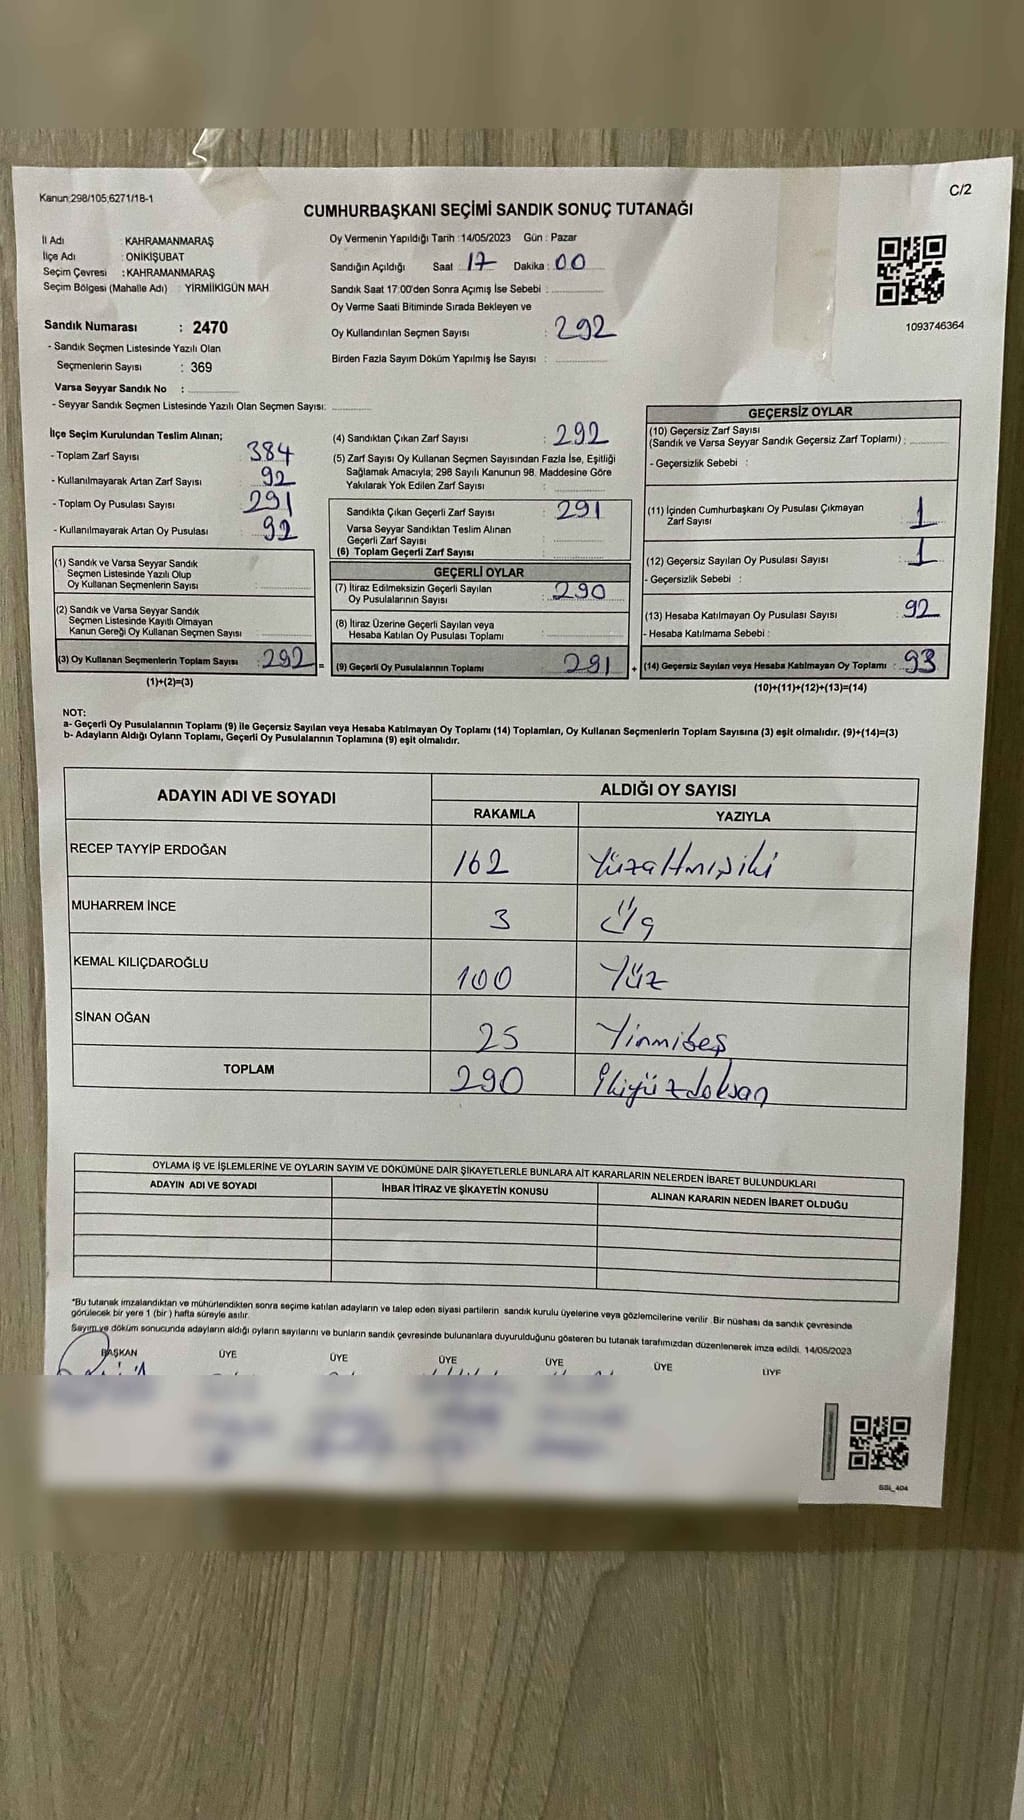 Kanun;298/105;6271/18-1
C/2
CUMHURBAŞKANI SEÇİMİ SANDIK SONUÇ TUTANAĞI
İl Adı : KAHRAMANMARAŞ
İlçe Adı : ONİKİŞUBAT
Seçim Çevresi : KAHRAMANMARAŞ
Seçim Bölgesi (Mahalle Adı) : YİRMİİKİGÜN MAH.
Sandık Numarası : 2470
- Sandık Seçmen Listesinde Yazılı Olan
Seçmenlerin Sayısı : 369
Varsa Seyyar Sandık No :
- Seyyar Sandık Seçmen Listesinde Yazılı Olan Seçmen Sayısı:
Oy Vermenin Yapıldığı Tarih : 14/05/2023 Gün : Pazar
Sandığın Açıldığı Saat : 17 Dakika : 00
Sandık Saat 17:00'den Sonra Açımış İse Sebebi :
Oy Verme Saati Bitiminde Sırada Bekleyen ve
Oy Kullandırılan Seçmen Sayısı : 292
Birden Fazla Sayım Döküm Yapılmış İse Sayısı :
1093746364
İlçe Seçim Kurulundan Teslim Alınan;
- Toplam Zarf Sayısı 384
- Kullanılmayarak Artan Zarf Sayısı 92
- Toplam Oy Pusulası Sayısı 291
- Kullanılmayarak Artan Oy Pusulası 92
(1) Sandık ve Varsa Seyyar Sandık
Seçmen Listesinde Yazılı Olup
Oy Kullanan Seçmenlerin Sayısı
(2) Sandık ve Varsa Seyyar Sandık
Seçmen Listesinde Kayıtlı Olmayan
Kanun Gereği Oy Kullanan Seçmen Sayısı
(3) Oy Kullanan Seçmenlerin Toplam Sayısı : 292 =
(1)+(2)=(3)
(4) Sandıktan Çıkan Zarf Sayısı : 292
(5) Zarf Sayısı Oy Kullanan Seçmen Sayısından Fazla İse, Eşitliği
Sağlamak Amacıyla; 298 Sayılı Kanunun 98. Maddesine Göre
Yakılarak Yok Edilen Zarf Sayısı :
Sandıkta Çıkan Geçerli Zarf Sayısı : 291
Varsa Seyyar Sandıktan Teslim Alınan
Geçerli Zarf Sayısı
(6) Toplam Geçerli Zarf Sayısı
GEÇERLİ OYLAR
(7) İtiraz Edilmeksizin Geçerli Sayılan
Oy Pusulalarının Sayısı : 290
(8) İtiraz Üzerine Geçerli Sayılan veya
Hesaba Katılan Oy Pusulası Toplamı
(9) Geçerli Oy Pusulalarının Toplamı : 291 +
GEÇERSİZ OYLAR
(10) Geçersiz Zarf Sayısı
(Sandık ve Varsa Seyyar Sandık Geçersiz Zarf Toplamı) :
- Geçersizlik Sebebi :
(11) İçinden Cumhurbaşkanı Oy Pusulası Çıkmayan
Zarf Sayısı : 1
(12) Geçersiz Sayılan Oy Pusulası Sayısı : 1
- Geçersizlik Sebebi :
(13) Hesaba Katılmayan Oy Pusulası Sayısı : 92
- Hesaba Katılmama Sebebi :
(14) Geçersiz Sayılan veya Hesaba Katılmayan Oy Toplamı : 93
(10)+(11)+(12)+(13)=(14)
NOT:
a- Geçerli Oy Pusulalarının Toplamı (9) ile Geçersiz Sayılan veya Hesaba Katılmayan Oy Toplamı (14) Toplamları, Oy Kullanan Seçmenlerin Toplam Sayısına (3) eşit olmalıdır. (9)+(14)=(3)
b- Adayların Aldığı Oyların Toplamı, Geçerli Oy Pusulalarının Toplamına (9) eşit olmalıdır.
ADAYIN ADI VE SOYADI
ALDIĞI OY SAYISI
RAKAMLA YAZIYLA
RECEP TAYYİP ERDOĞAN 162 Yüzaltmışiki
MUHARREM İNCE 3 Üç
KEMAL KILIÇDAROĞLU 100 Yüz
SİNAN OĞAN 25 Yirmibeş
TOPLAM 290 İkiyüzdoksan
OYLAMA İŞ VE İŞLEMLERİNE VE OYLARIN SAYIM VE DÖKÜMÜNE DAİR ŞİKAYETLERLE BUNLARA AİT KARARLARIN NELERDEN İBARET BULUNDUKLARI
ADAYIN ADI VE SOYADI İHBAR İTİRAZ VE ŞİKAYETİN KONUSU ALINAN KARARIN NEDEN İBARET OLDUĞU
*Bu tutanak imzalandıktan ve mühürlendikten sonra seçime katılan adayların ve talep eden siyasi partilerin sandık kurulu üyelerine veya gözlemcilerine verilir. Bir nüshası da sandık çevresinde
görülecek bir yere 1 (bir ) hafta süreyle asılır.
Sayım ve döküm sonucunda adayların aldığı oyların sayılarını ve bunların sandık çevresinde bulunanlara duyurulduğunu gösteren bu tutanak tarafımızdan düzenlenerek imza edildi. 14/05/2023
BAŞKAN ÜYE ÜYE ÜYE ÜYE ÜYE ÜYE
SSI_404